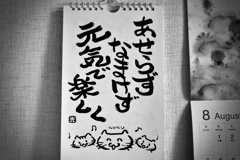 あせらず
なまけず
元気で楽しく
8 August